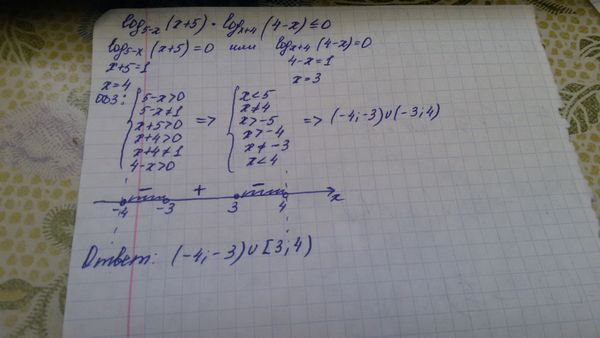 log₅₋ₓ (x+5) · logₓ₊₄ (4-x) ≤ 0
log₅₋ₓ (x+5) = 0 или logₓ₊₄ (4-x) = 0
x+5=1 4-x=1
x=4 x=3
ОДЗ: { 5-x>0 => { x<5 => (-4;-3)∪(-3;4)
5-x≠1 x≠4
x+5>0 x>-5
x+4>0 x>-4
x+4≠1 x≠-3
4-x>0 x<4
- + -
-4 -3 3 4 x
Ответ: (-4;-3)∪[3;4)